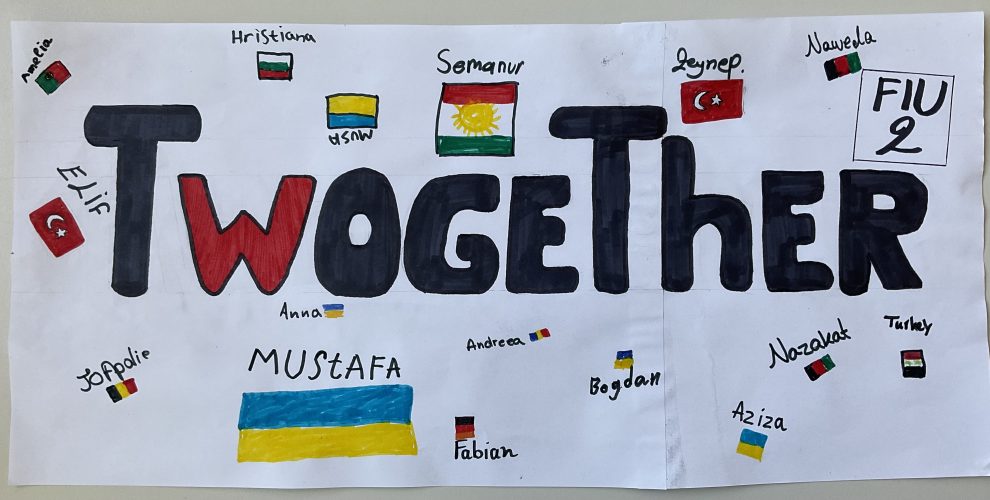 Amelia
Hristiana
MUSA
Semanur
Zeynep.
Naweda
FIU
2
ELIF
TWOGETHER
Anna
Andreea
Nazakat
Turkey
MUStAFA
Bogdan
Aziza
Fabian